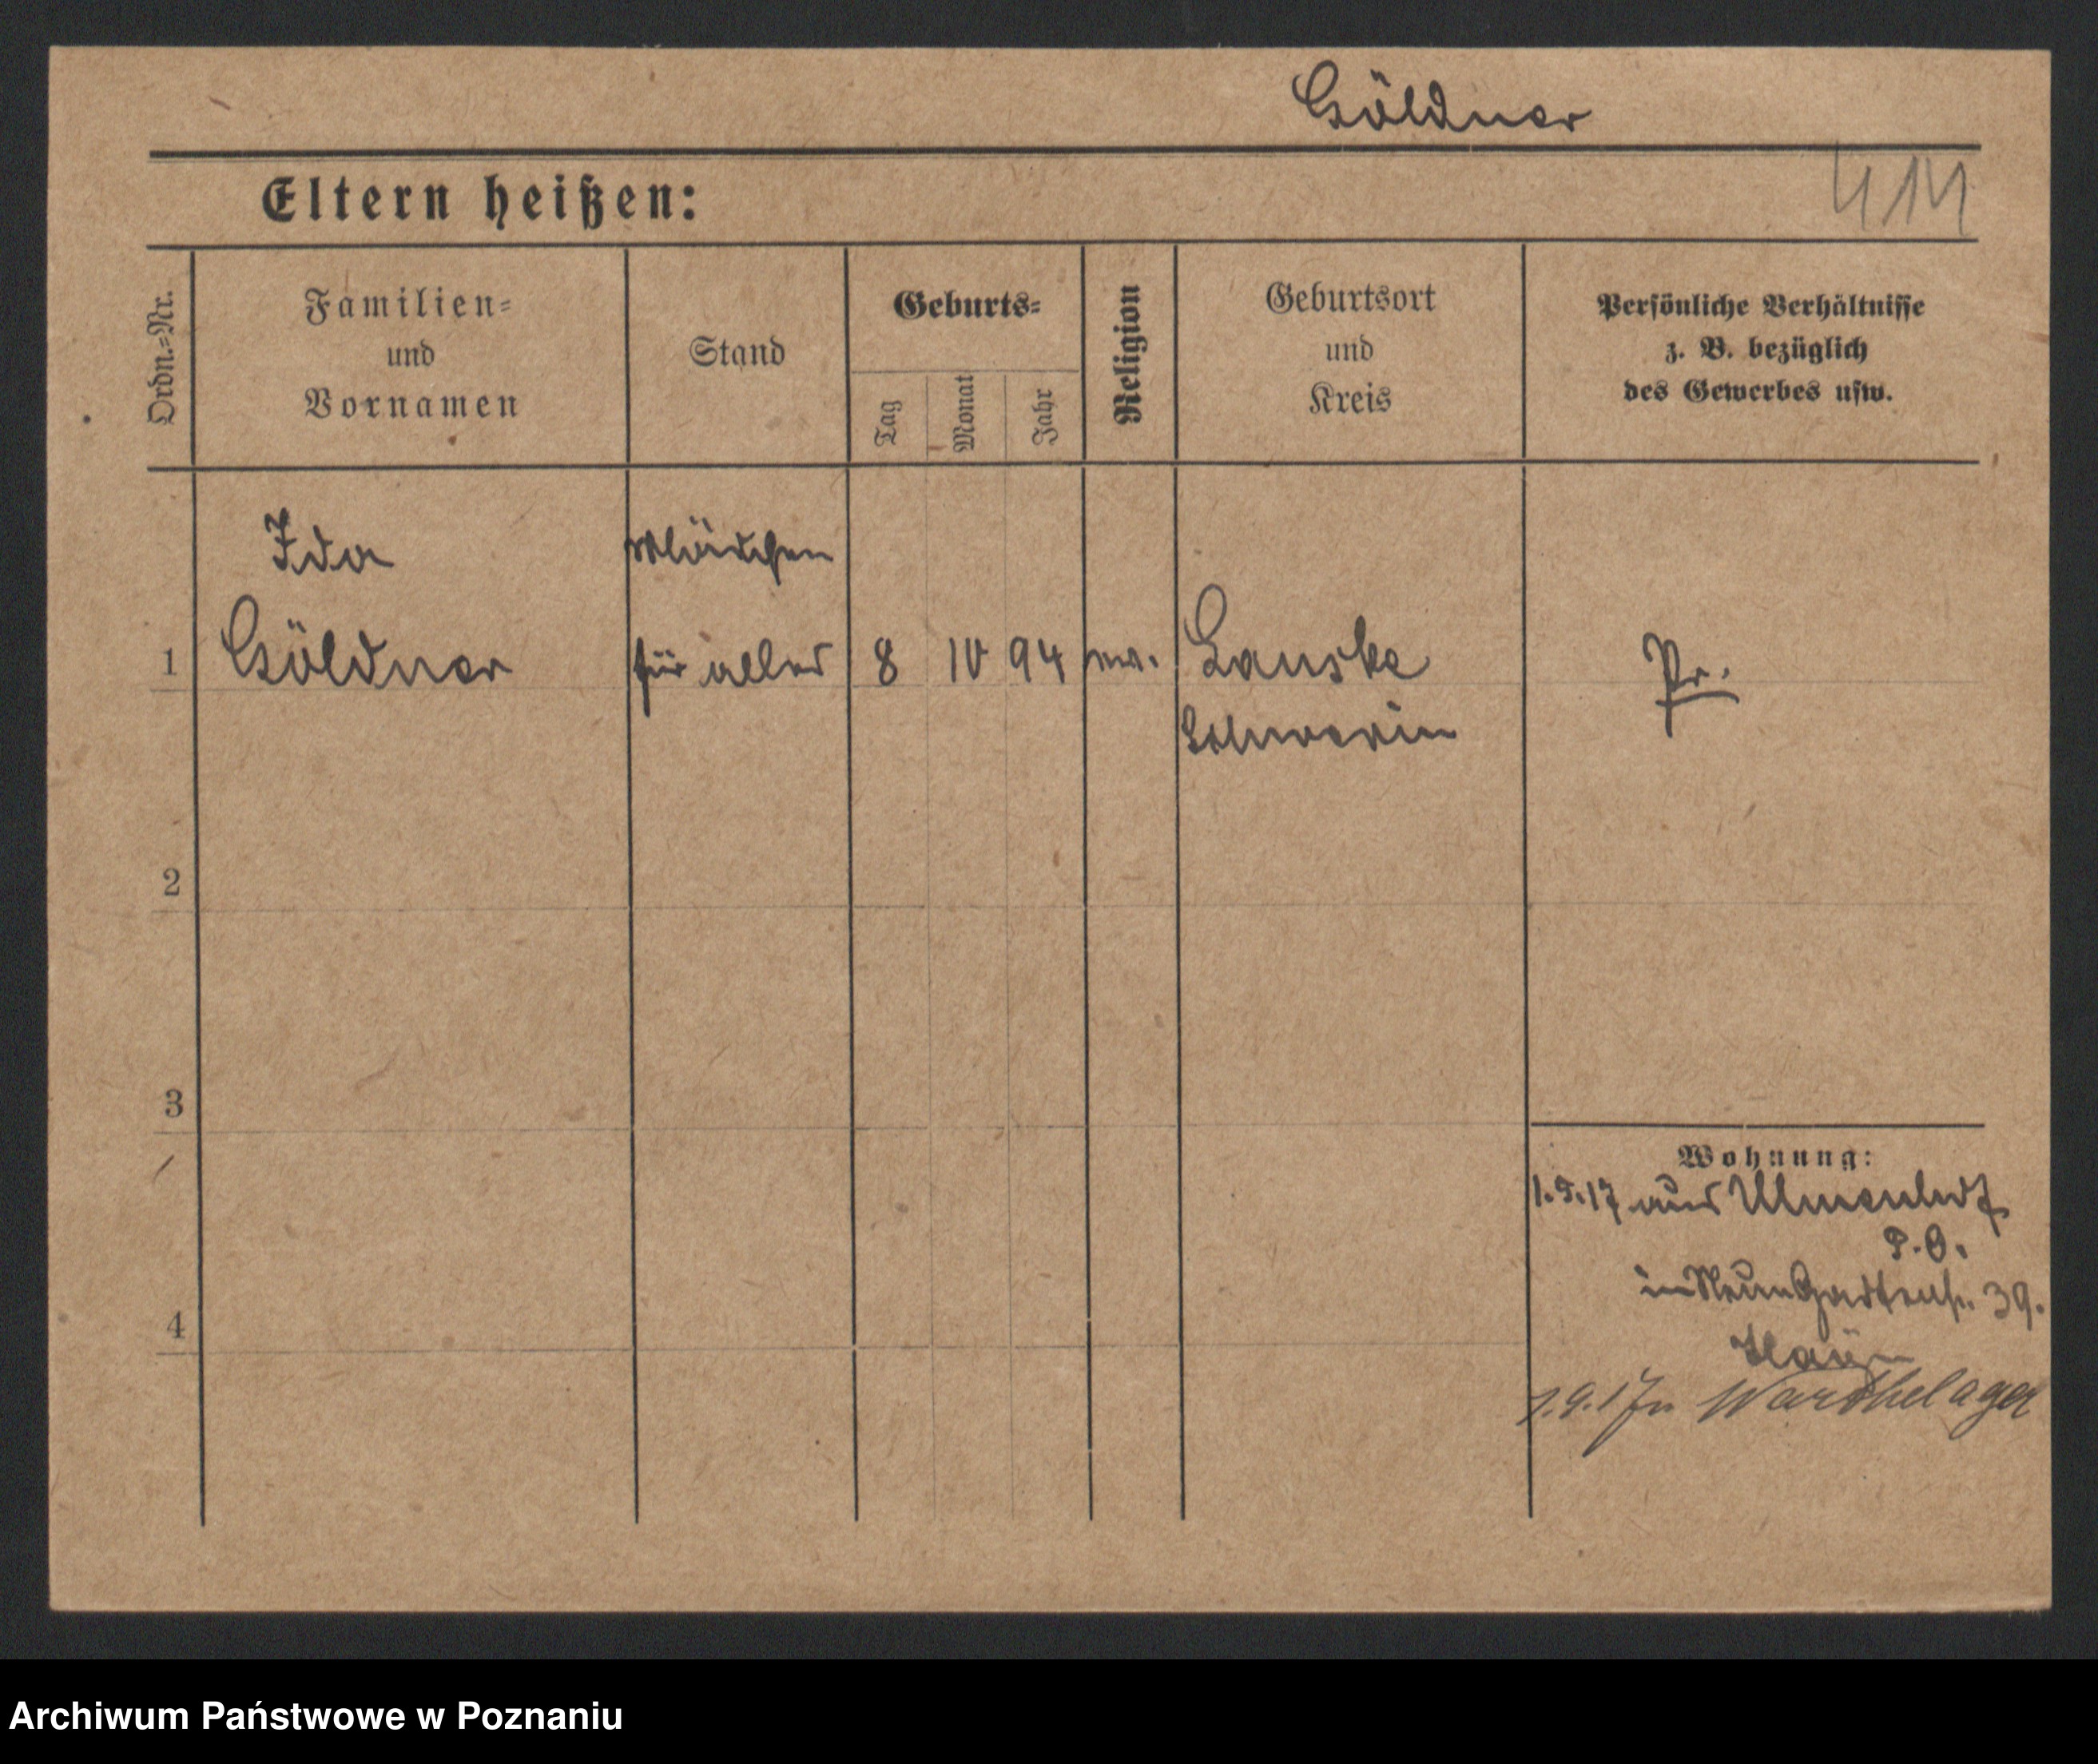 Göldner
Eltern heißen:
414
Ordn.=Nr.
Familien=
und
Vornamen
Stand
Geburts=
Tag
Monat
Jahr
Religion
Geburtsort
und
Kreis
Persönliche Verhältnisse
z. B. bezüglich
des Gewerbes usw.
Ida
Mädchen
1
Göldner
für alles
8
10
94
ev.
Lauske
Pr.
Schwerin
2
3
Wohnung:
1.5.17 aus
P. O.
in 39.
4
1.9.17 n Warthelager
Archiwum Państwowe w Poznaniu